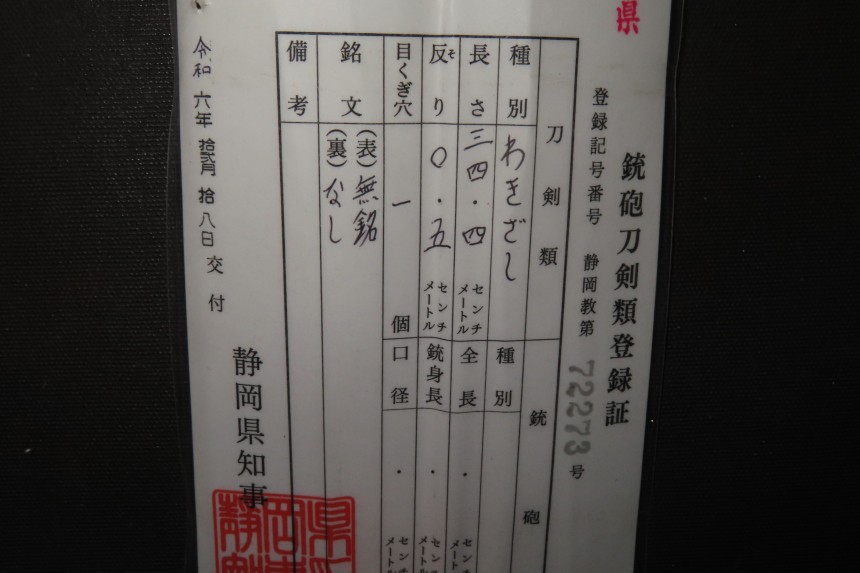 県
銃砲刀剣類登録証
登録記号番号 静岡教第 72273 号
刀剣類
種別 わきざし
長さ 三四.四 センチメートル
反り そ 〇.五 センチメートル
目くぎ穴 一 個
銘文 (表)無銘
(裏)なし
備考
銃砲
種別
全長 . センチメートル
銃身長 . センチメートル
口径 . センチメートル
令和 六年 拾弐月 拾八日 交付
静岡県知事